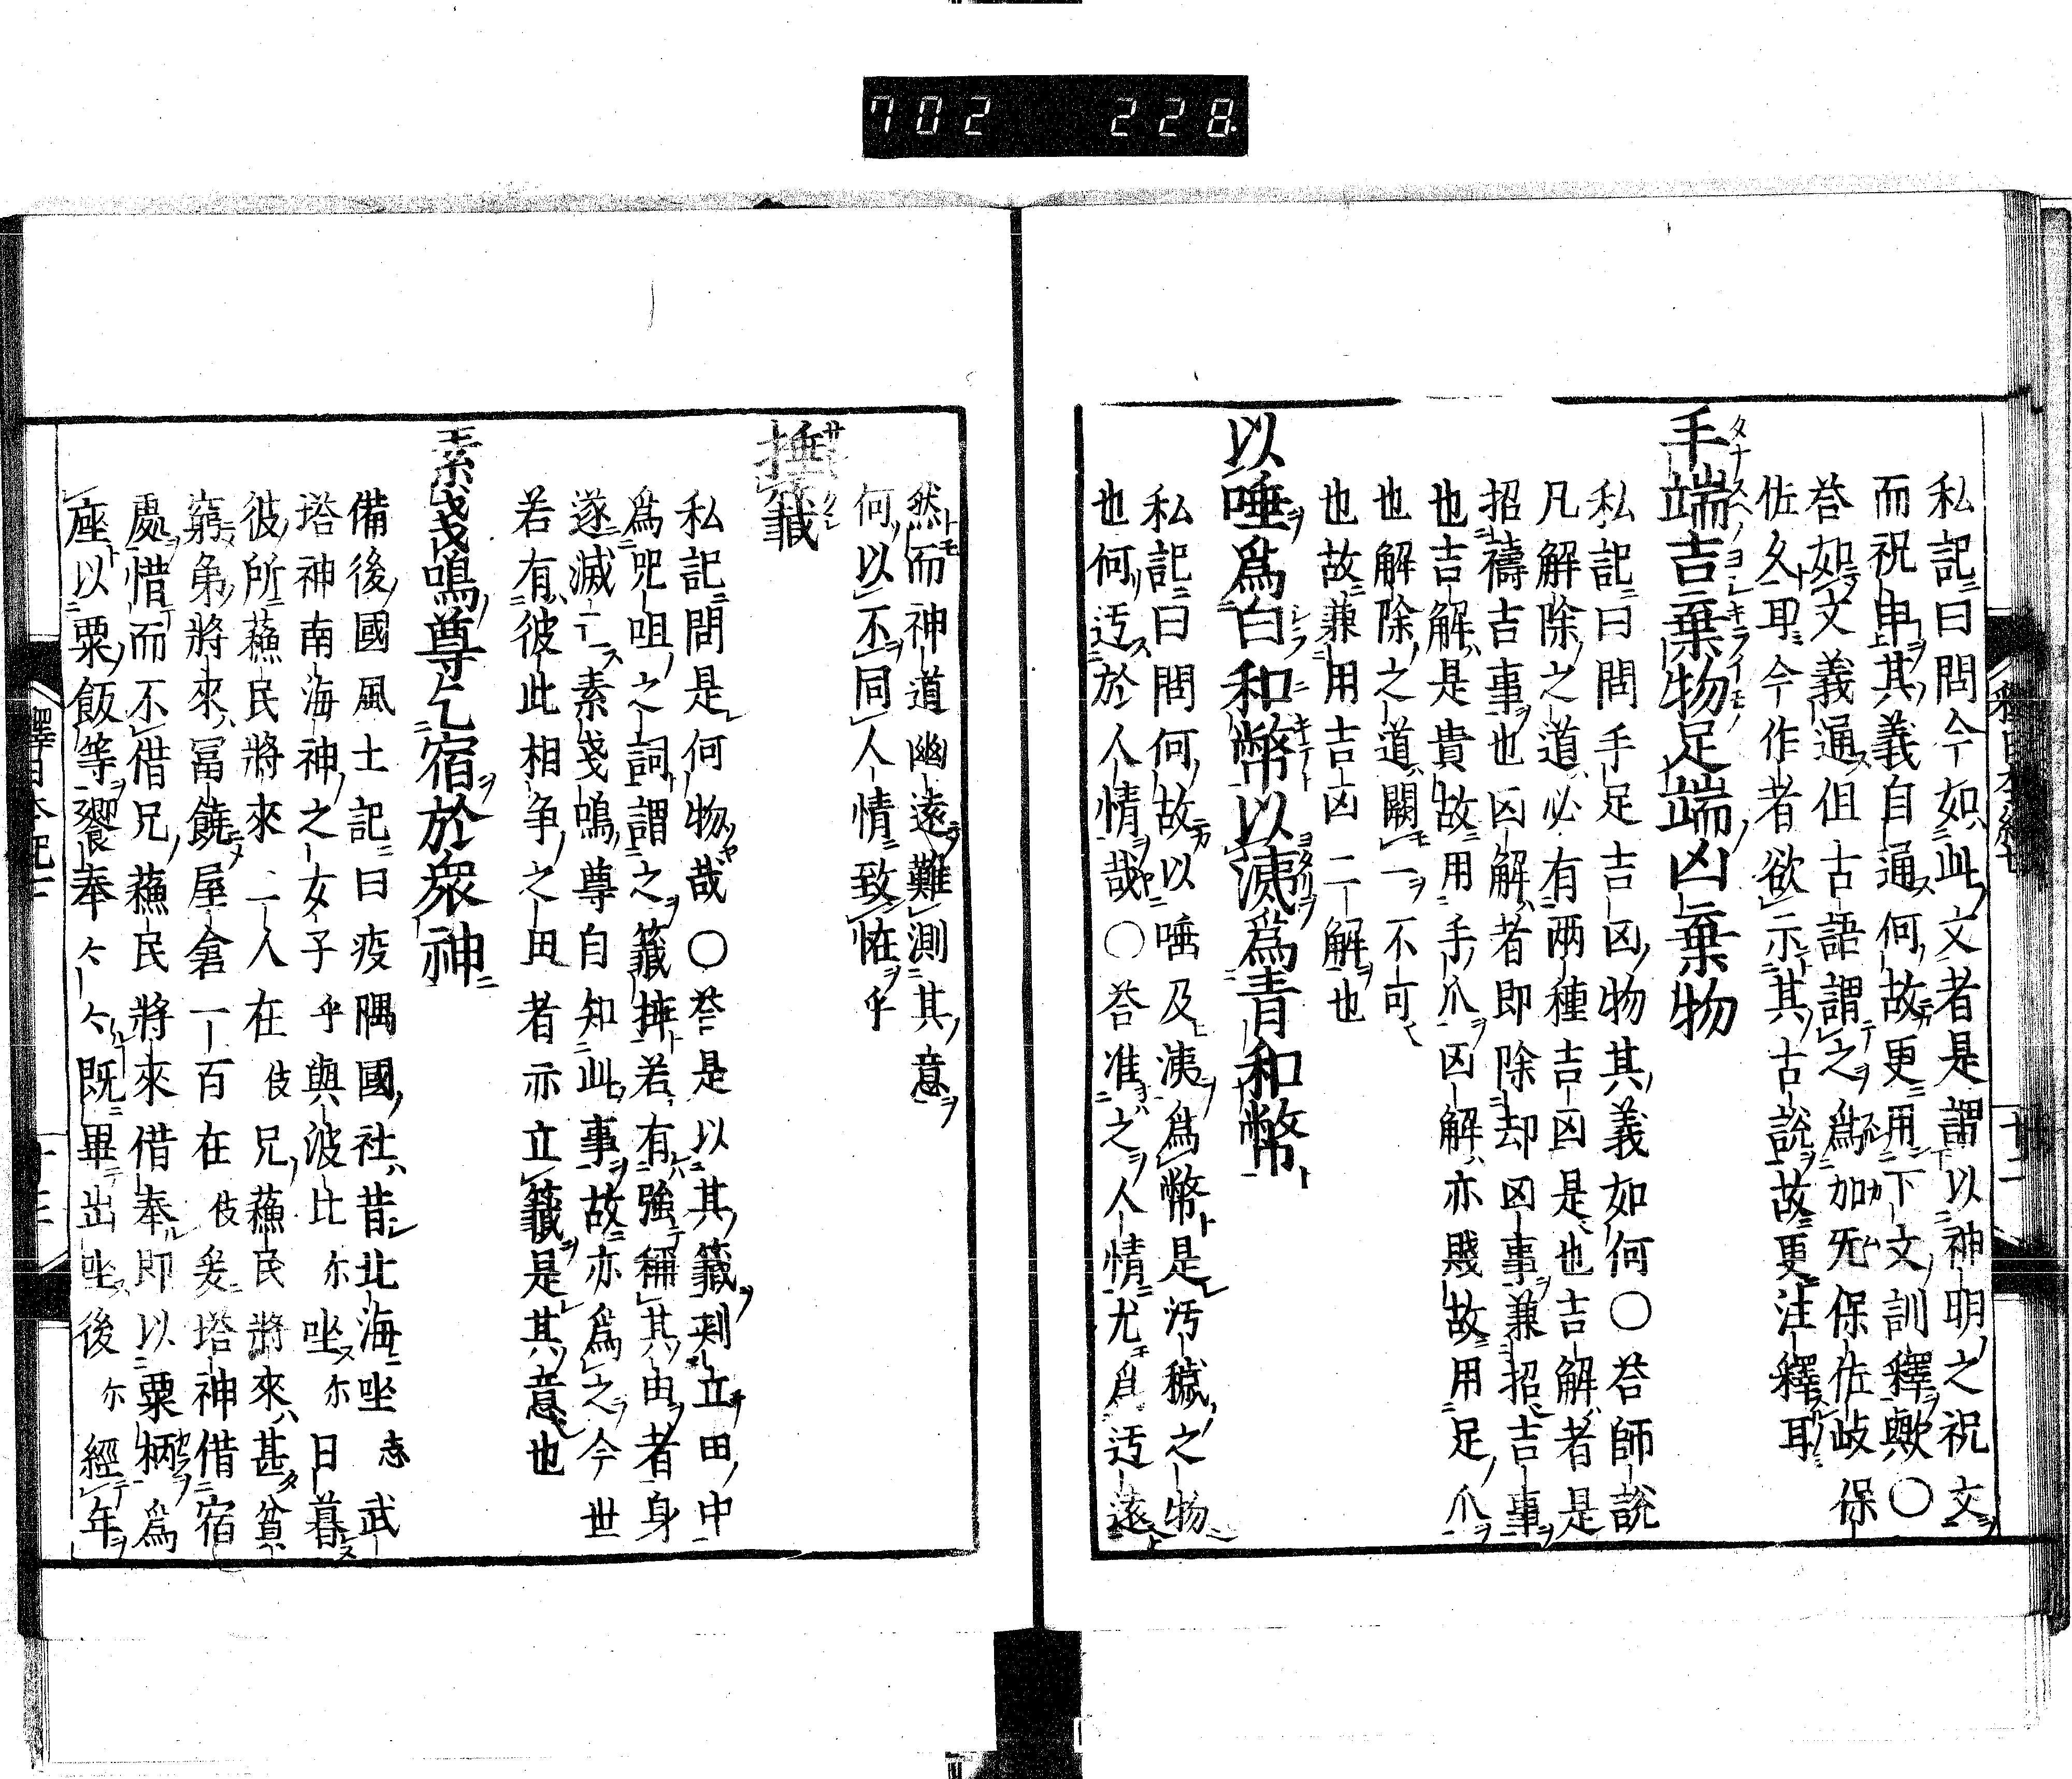 702 228
私記曰問今如此文者是謂以神明之祝文
而祝申其義自通何故更用下文訓釋歟〇
荅如文義通但古語謂之爲加旡保佐岐保
佐久耳今作者欲示其古說故更注釋耳
手端吉棄物足端凶棄物
私記曰問手足吉凶物其義如何〇荅師說
凡解除之道必有兩種吉凶是也吉解者是
招禱吉事也凶解者即除却凶事兼招吉事
也吉解是貴故用手爪凶解亦賤故用足爪
也解除之道闕一不可
也故兼用吉凶二解也
以唾爲白和幣以洟爲青和幣
私記曰問何故以唾及洟爲幣是汚穢之物
也何迃於人情哉〇荅准之人情尤爲迃遠
然而神道幽遠難測其意
何以不同人情致恠乎
捶籤
私記問是何物哉〇荅是以其籤刺立田中
爲咒咀之詞謂之籤捶若有強稱其由者身
遂滅亡素戔嗚尊自知此事故亦爲之今世
若有彼此相争之田者示立籤是其意也
素戔嗚尊乞宿於衆神
備後國風土記曰疫隅國社昔北海坐志武
塔神南海神之女子乎與波比尓坐尓日暮
彼所蘓民將來二人在伎兄蘓民將來甚貧
窮弟將來冨饒屋倉一百在伎爰塔神借宿
處惜而不借兄蘓民將來借奉即以粟柄爲
座以粟飯等饗奉々々既畢出坐後尓經年
釋日本紀七
十二
釋日本紀七
十三